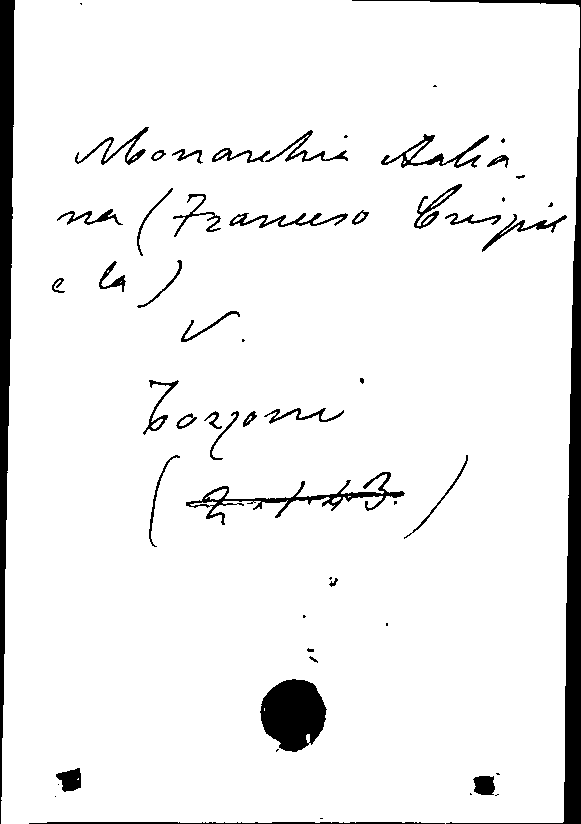 Monarchia Italia-
na (Francesco Crispi
e la)
V.
Tozzoni
(2.1.4.3.)